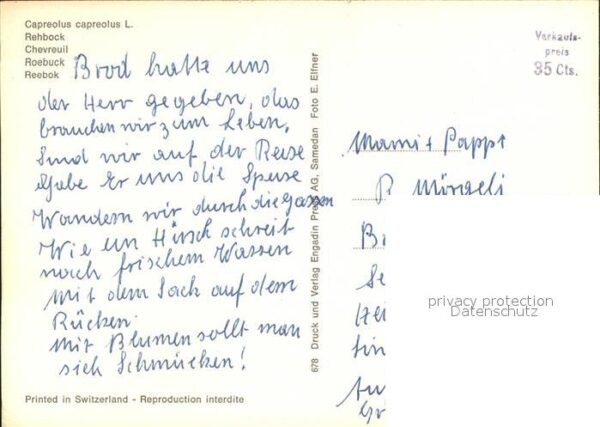 Capreolus capreolus L.
Rehbock
Chevreuil
Roebuck
Reebok
Verkaufs-
preis
35 Cts.
Brod hatte uns
der Herr gegeben, das
brauchen wir zum Leben,
Sind wir auf der Reise
Gabe Er uns die Speise
Wandern wir durch die Gassen
Wie ein Hirsch schreit
nach frischem Wassen
Mit dem Sack auf dem
Rücken.
Mit Blumen sollt man
sich Schmücken!
678 Druck und Verlag Engadin Press AG, Samedan Foto E. Elfner
Mami + Pappi
P. Mörgeli
B
Se
privacy protection
Datenschutz
Printed in Switzerland - Reproduction interdite